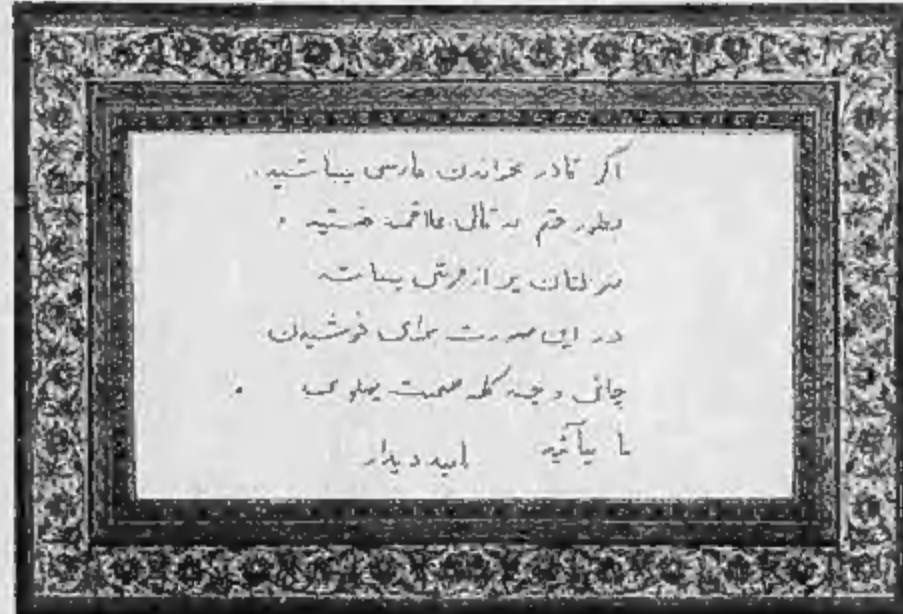 اگر قادر بخواندن فارسی میباشید.
بطور حتم به قالی علاقمند هستید.
منزلتان پر از فرش
در این صورت برای نوشیدن
چائی و چند کلمه صحبت
ما بیآئید    بامید دیدار